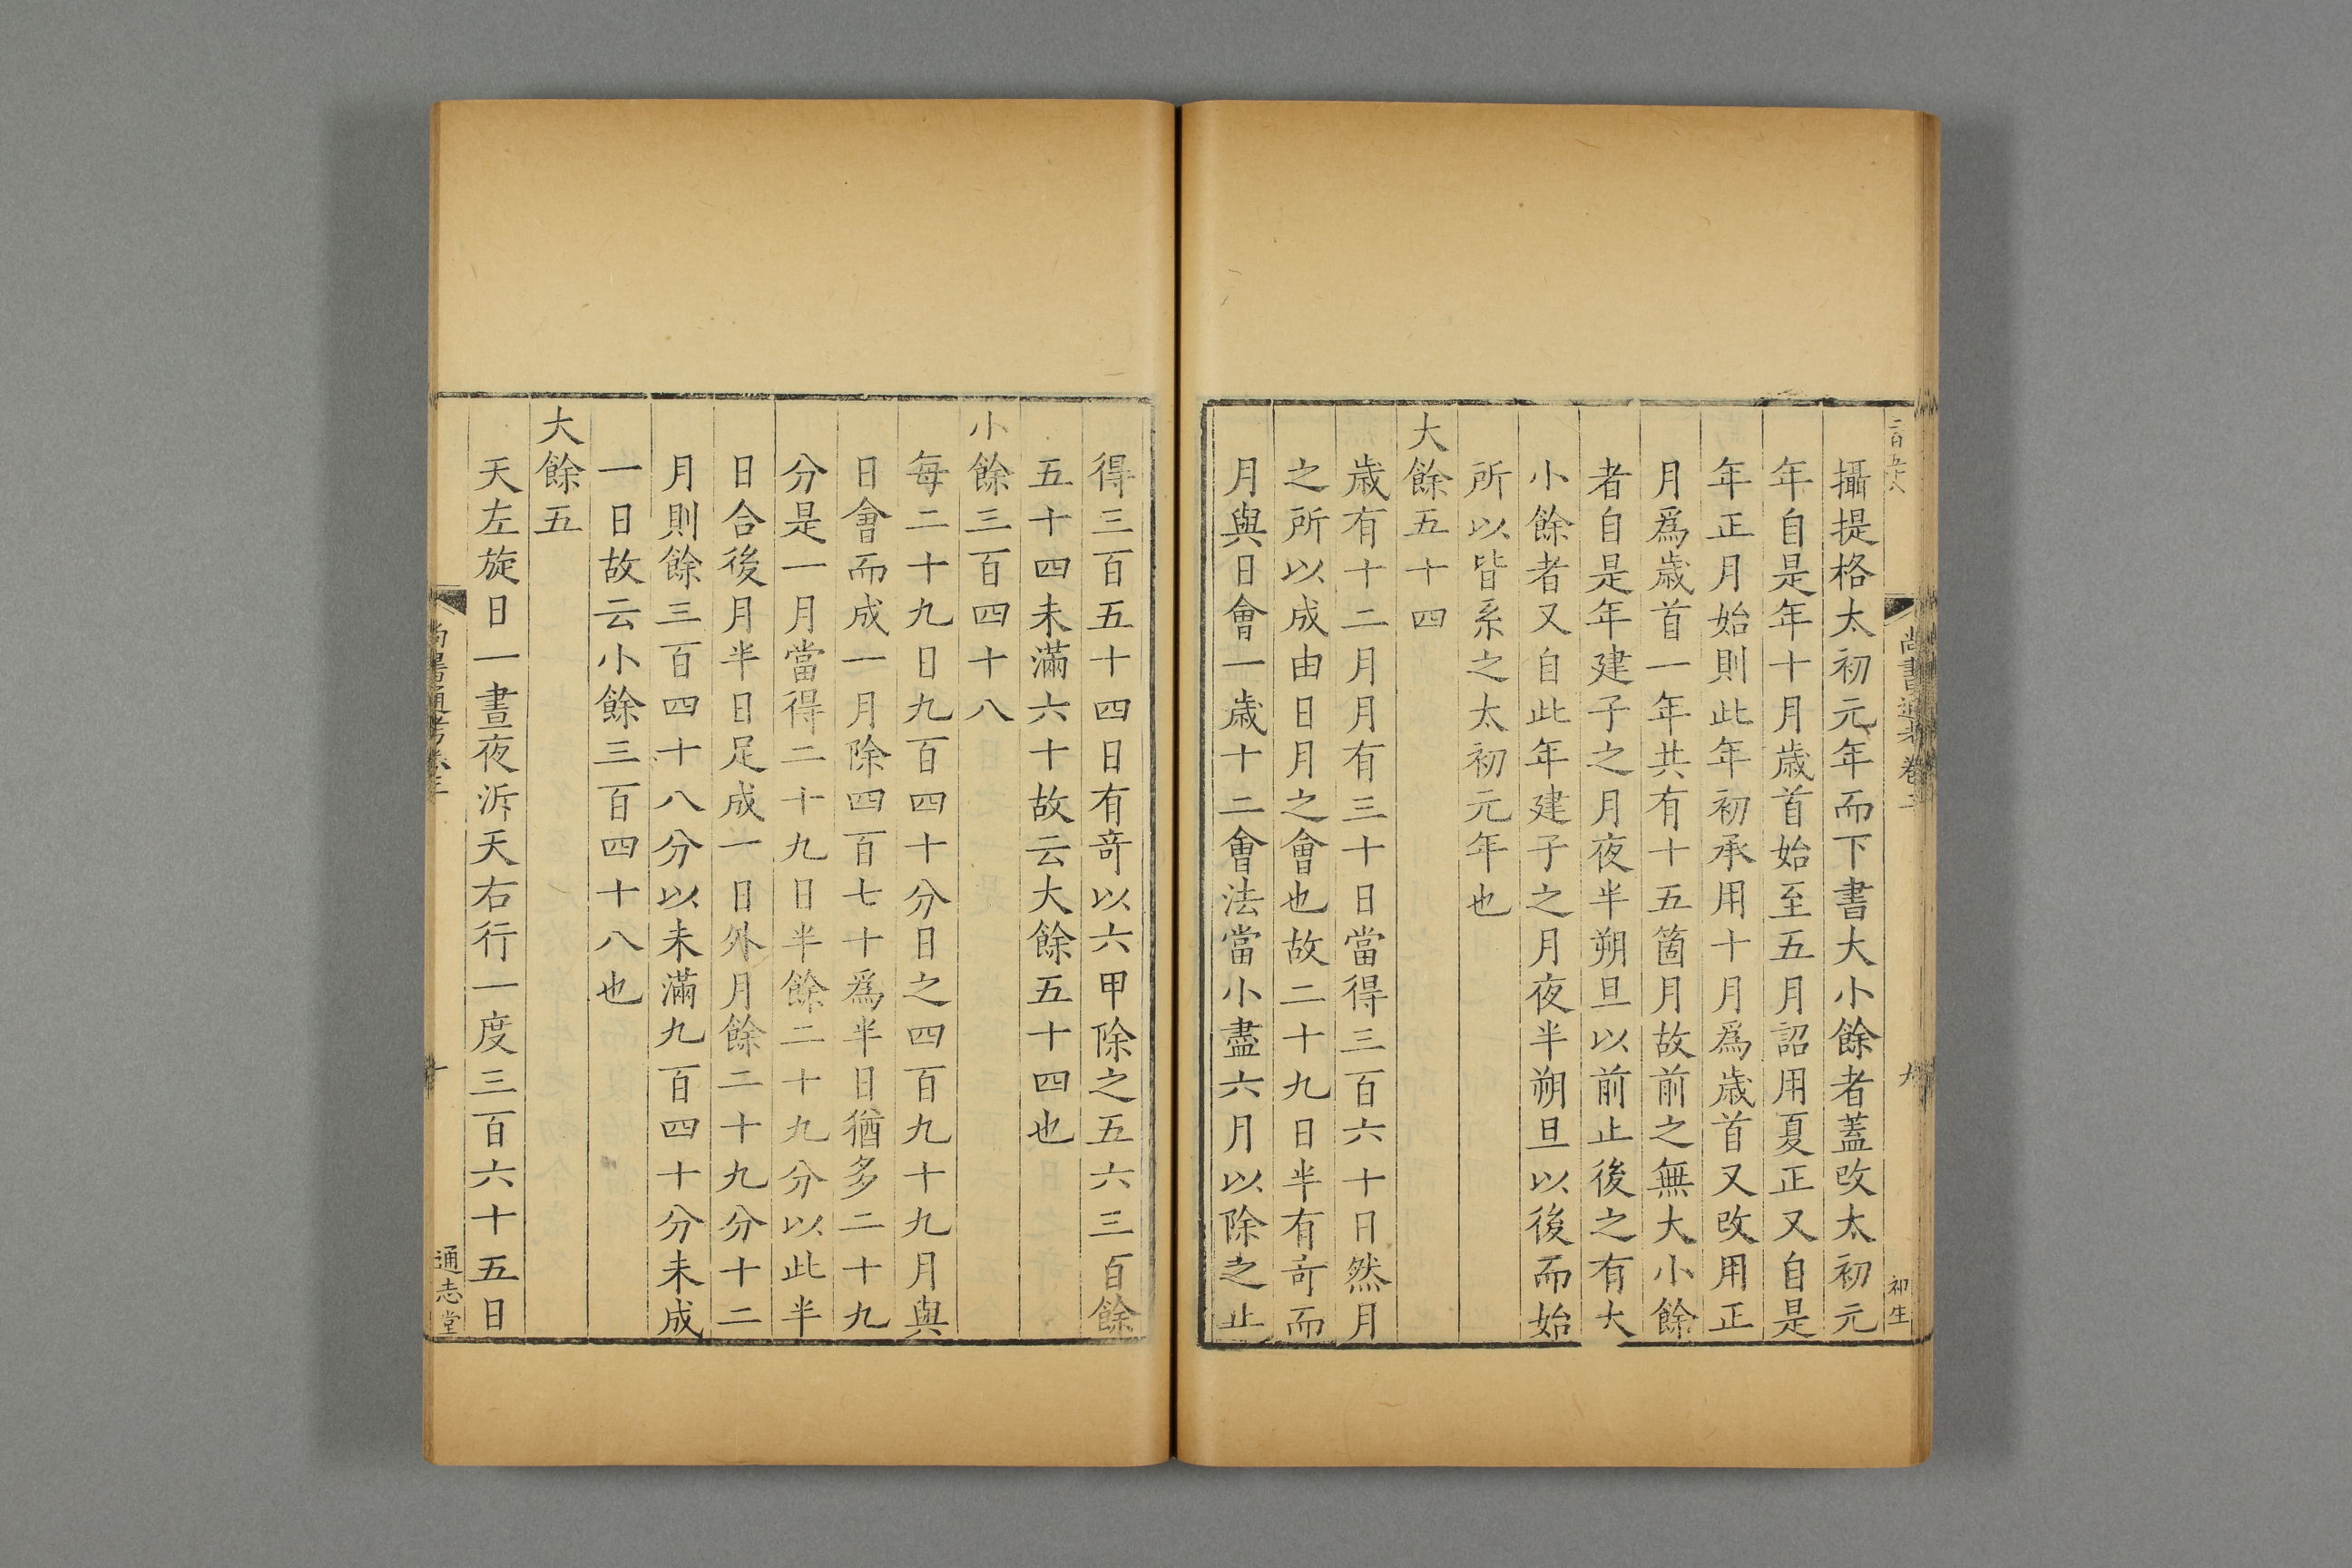 攝提格太初元年而下書大小餘者蓋改太初元
年自是年十月歲首始至五月詔用夏正又自是
年正月始則此年初承用十月爲歲首又改用正
月爲歲首一年共有十五箇月故前之無大小餘
者自是年建子之月夜半朔旦以前止後之有大
小餘者又自此年建子之月夜半朔旦以後而始
所以皆系之太初元年也
大餘五十四
歲有十二月月有三十日當得三百六十日然月
之所以成由日月之會也故二十九日半有奇而
月與日會一歲十二會法當小盡六月以除之止
得三百五十四日有奇以六甲除之五六三百餘
五十四未滿六十故云大餘五十四也
小餘三百四十八
每二十九日九百四十分日之四百九十九月與
日會而成一月除四百七十爲半日猶多二十九
分是一月當得二十九日半餘二十九分以此半
日合後月半日足成一日外月餘二十九分十二
月則餘三百四十八分以未滿九百四十分未成
一日故云小餘三百四十八也
大餘五
天左旋日一晝夜泝天右行一度三百六十五日
通志堂